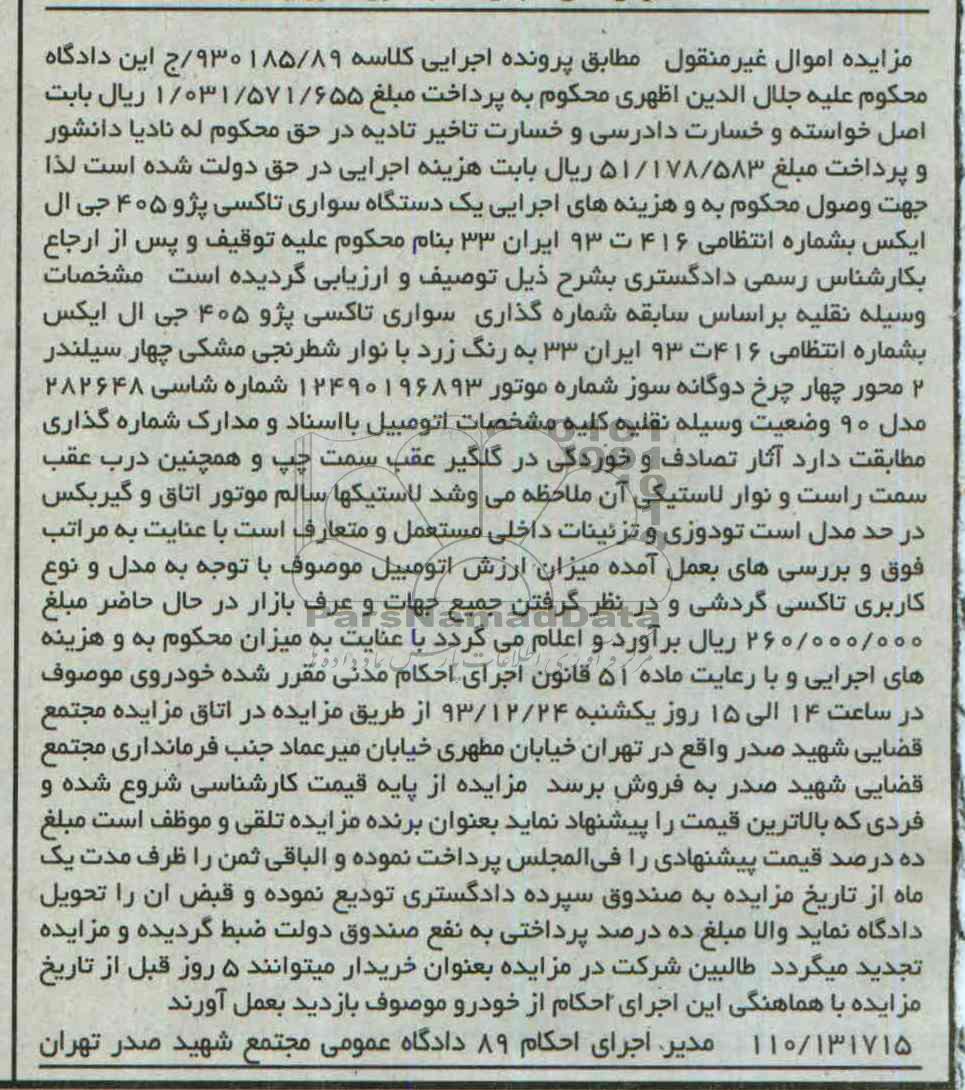 مزایده اموال غیرمنقول مطابق پرونده اجرایی کلاسه ۹۳۰۱۸۵/۸۹/ج این دادگاه
محکوم علیه جلال الدین اظهری محکوم به پرداخت مبلغ ۱/۰۳۱/۵۷۱/۶۵۵ ریال بابت
اصل خواسته و خسارت دادرسی و خسارت تاخیر تادیه در حق محکوم له نادیا دانشور
و پرداخت مبلغ ۵۱/۱۷۸/۵۸۳ ریال بابت هزینه اجرایی در حق دولت شده است لذا
جهت وصول محکوم به و هزینه های اجرایی یک دستگاه سواری تاکسی پژو ۴۰۵ جی ال
ایکس بشماره انتظامی ۴۱۶ ت ۹۳ ایران ۳۳ بنام محکوم علیه توقیف و پس از ارجاع
بکارشناس رسمی دادگستری بشرح ذیل توصیف و ارزیابی گردیده است مشخصات
وسیله نقلیه براساس سابقه شماره گذاری سواری تاکسی پژو ۴۰۵ جی ال ایکس
بشماره انتظامی ۴۱۶ت ۹۳ ایران ۳۳ به رنگ زرد با نوار شطرنجی مشکی چهار سیلندر
۲ محور چهار چرخ دوگانه سوز شماره موتور ۱۲۴۹۰۱۹۶۸۹۳ شماره شاسی ۲۸۲۶۴۸
مدل ۹۰ وضعیت وسیله نقلیه کلیه مشخصات اتومبیل بااسناد و مدارک شماره گذاری
مطابقت دارد آثار تصادف و خوردگی در گلگیر عقب سمت چپ و همچنین درب عقب
سمت راست و نوار لاستیکی آن ملاحظه می وشد لاستیکها سالم موتور اتاق و گیربکس
در حد مدل است تودوزی و تزئینات داخلی مستعمل و متعارف است با عنایت به مراتب
فوق و بررسی های بعمل آمده میزان ارزش اتومبیل موصوف با توجه به مدل و نوع
کاربری تاکسی گردشی و در نظر گرفتن جمیع جهات و عرف بازار در حال حاضر مبلغ
۲۶۰/۰۰۰/۰۰۰ ریال برآورد و اعلام می گردد با عنایت به میزان محکوم به و هزینه
های اجرایی و با رعایت ماده ۵۱ قانون اجرای احکام مدنی مقرر شده خودروی موصوف
در ساعت ۱۴ الی ۱۵ روز یکشنبه ۹۳/۱۲/۲۴ از طریق مزایده در اتاق مزایده مجتمع
قضایی شهید صدر واقع در تهران خیابان مطهری خیابان میرعماد جنب فرمانداری مجتمع
قضایی شهید صدر به فروش برسد مزایده از پایه قیمت کارشناسی شروع شده و
فردی که بالاترین قیمت را پیشنهاد نماید بعنوان برنده مزایده تلقی و موظف است مبلغ
ده درصد قیمت پیشنهادی را فی‌المجلس پرداخت نموده و الباقی ثمن را ظرف مدت یک
ماه از تاریخ مزایده به صندوق سپرده دادگستری تودیع نموده و قبض ان را تحویل
دادگاه نماید والا مبلغ ده درصد پرداختی به نفع صندوق دولت ضبط گردیده و مزایده
تجدید میگردد طالبین شرکت در مزایده بعنوان خریدار میتوانند ۵ روز قبل از تاریخ
مزایده با هماهنگی این اجرای احکام از خودرو موصوف بازدید بعمل آورند
۱۱۰/۱۳۱۷۱۵ مدیر اجرای احکام ۸۹ دادگاه عمومی مجتمع شهید صدر تهران
ParsNamadData